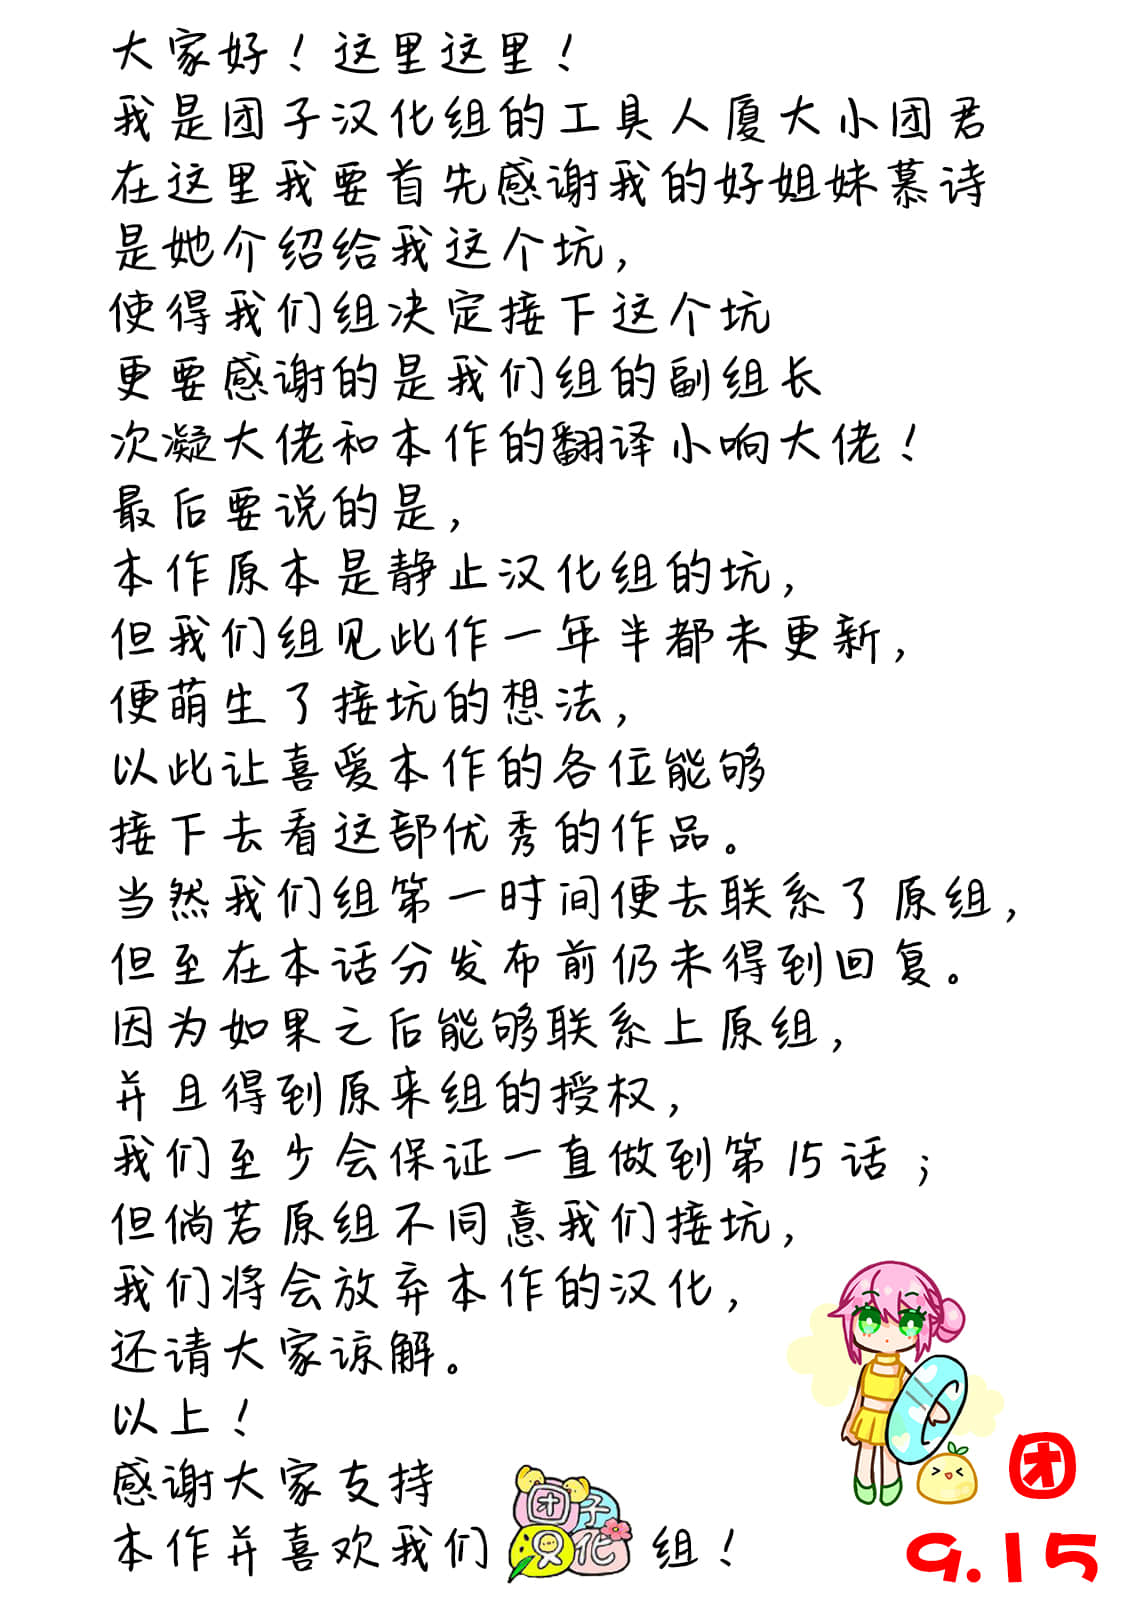 大家好！这里这里！
我是团子汉化组的工具人厦大小团君
在这里我要首先感谢我的好姐妹慕诗
是她介绍给我这个坑，
使得我们组决定接下这个坑
更要感谢的是我们组的副组长
次凝大佬和本作的翻译小响大佬！
最后要说的是，
本作原本是静止汉化组的坑，
但我们组见此作一年半都未更新，
便萌生了接坑的想法，
以此让喜爱本作的各位能够
接下去看这部优秀的作品。
当然我们组第一时间便去联系了原组，
但至在本话分发布前仍未得到回复。
因为如果之后能够联系上原组，
并且得到原来组的授权，
我们至少会保证一直做到第15话；
但倘若原组不同意我们接坑，
我们将会放弃本作的汉化，
还请大家谅解。
以上！
感谢大家支持
本作并喜欢我们团子汉化组！
团
9.15